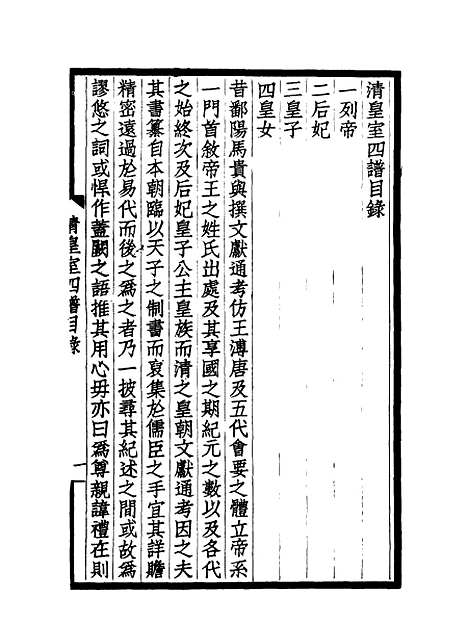 清皇室四譜目錄
一列帝
二后妃
三皇子
四皇女
昔鄱陽馬貴與撰文獻通考仿王溥唐及五代會要之體立帝系
一門首敘帝王之姓氏出處及其享國之期紀元之數以及各代
之始終次及后妃皇子公主皇族而清之皇朝文獻通考因之夫
其書纂自本朝臨以天子之制書而裒集於儒臣之手宜其詳贍
精密遠過於易代而後之為之者乃一披尋其紀述之間或故為
謬悠之詞或悍作蓋闕之語推其用心毋亦曰為尊親諱禮在則
清皇室四譜目錄
一